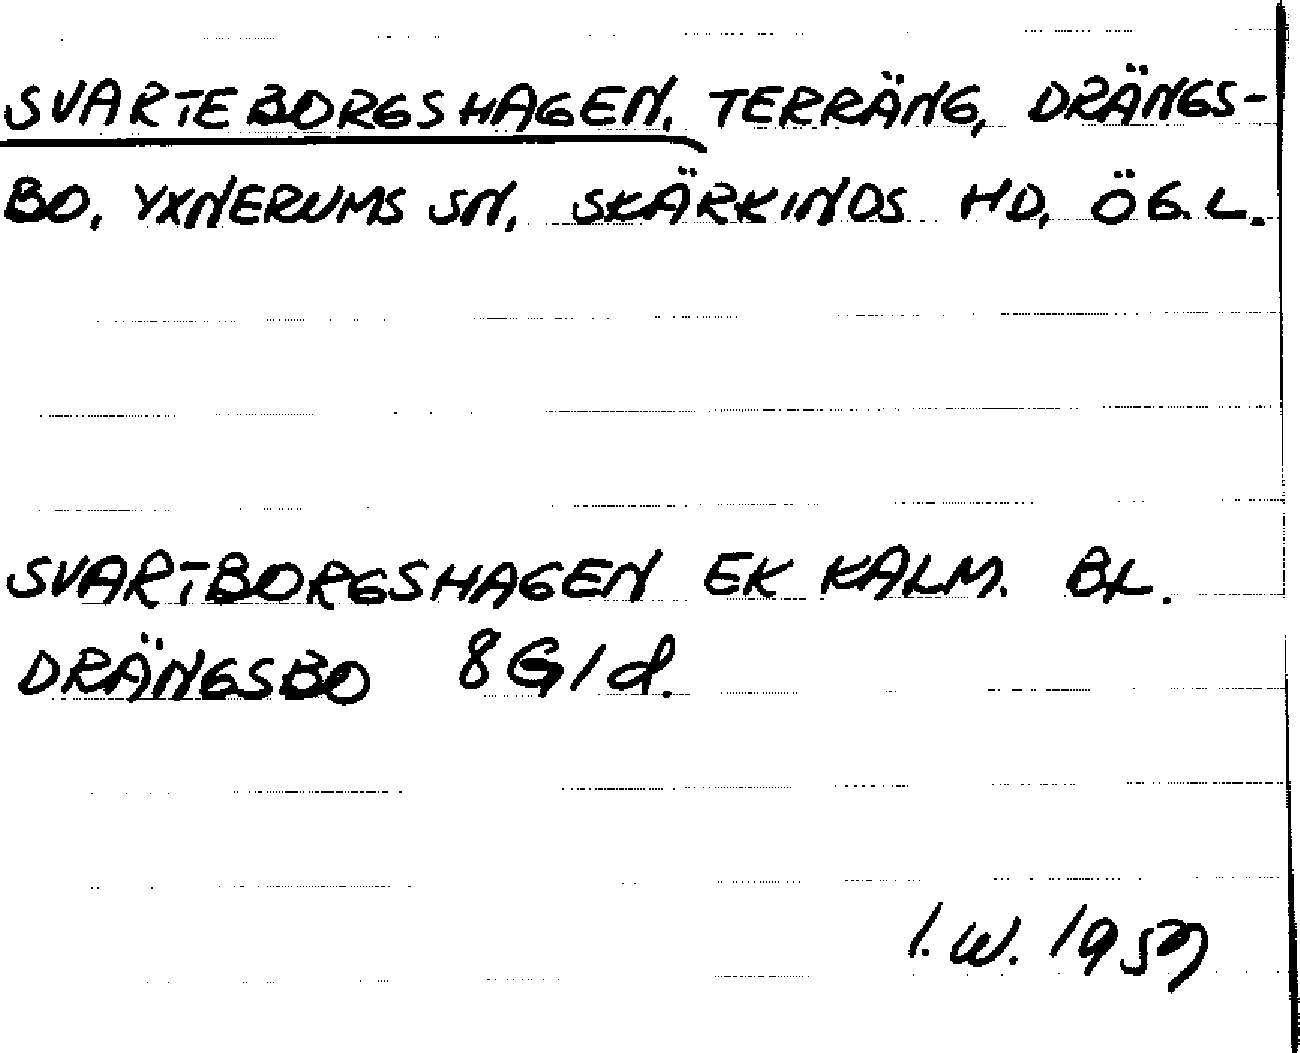 SVARTEBORGSHAGEN, TERRÄNG, DRÄNGS-
BO, YXNERUMS SN, SKÄRKINDS HD, ÖG. L.
SVARTBORGSHAGEN EK KALM. BL.
DRÄNGSBO 8G1d.
I.W. 1957